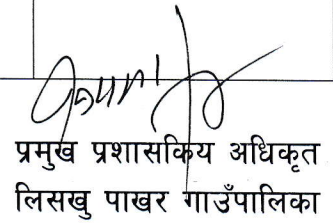 प्रमुख प्रशासकिय अधिकृत
लिसखु पाखर गाउँपालिका